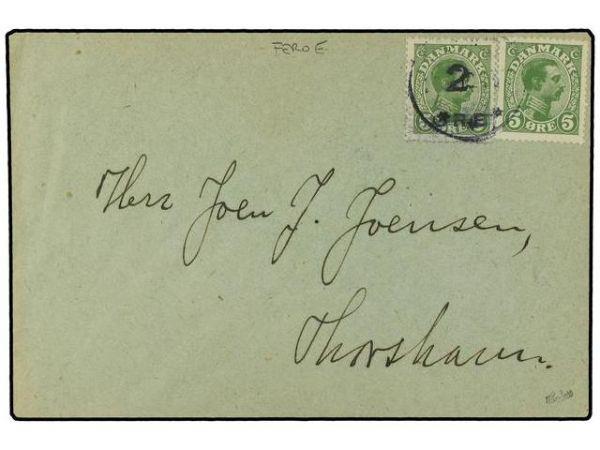 FEROE
DANMARK
2
ØRE
5 5
DANMARK
5 ØRE 5
Herr Joen J. Joensen,
Thorshavn.